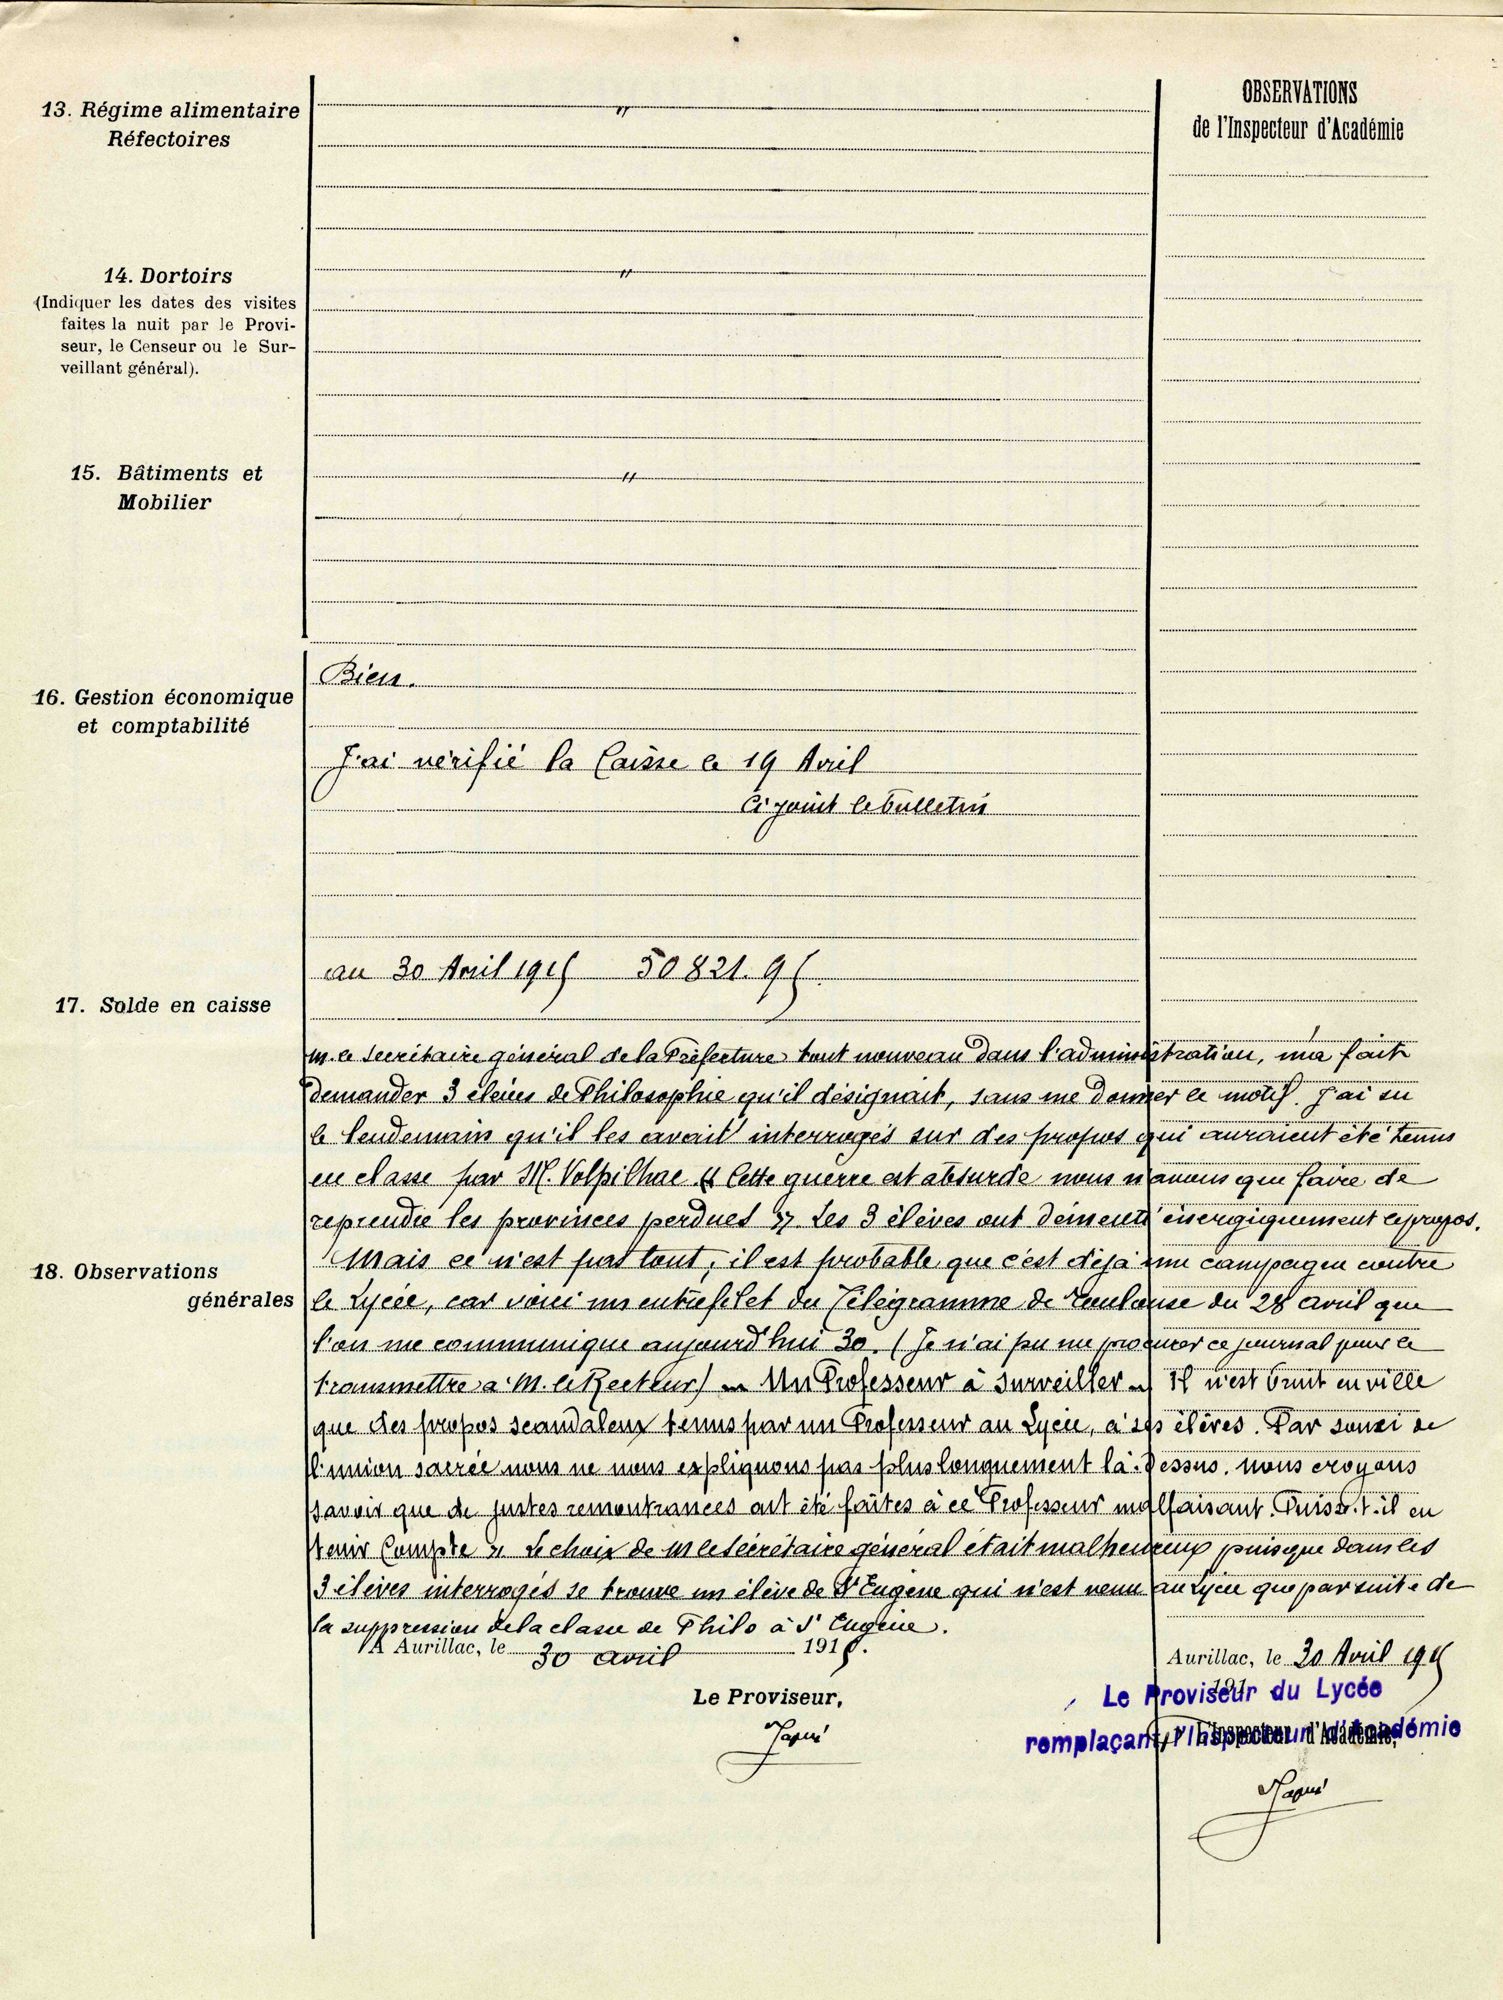 OBSERVATIONS
de l'Inspecteur d'Académie
13. Régime alimentaire
Réfectoires
"
14. Dortoirs
(Indiquer les dates des visites
faites la nuit par le Provi-
seur, le Censeur ou le Sur-
veillant général).
"
15. Bâtiments et
Mobilier
"
16. Gestion économique
et comptabilité
Bien.
J'ai vérifié la Caisse le 19 Avril
Ci joint le bulletin
17. Solde en caisse
au 30 Avril 1915 50821.95
18. Observations
générales
M. le Secrétaire général de la Préfecture tout nouveau dans l'administration, m'a fait
demander 3 élèves de Philosophie qu'il désignait, sans me donner le motif. J'ai su
le lendemain qu'il les avait interrogés sur des propos qui auraient été tenus
en classe par M. Volpilhac « Cette guerre est absurde nous n'avons que faire de
reprendre les provinces perdues ». Les 3 élèves ont démenti énergiquement ce propos.
Mais ce n'est pas tout, il est probable que c'est déjà une campagne contre
le Lycée, car voici un entrefilet du Télégramme de Toulouse du 28 avril que
l'on me communique aujourd'hui 30. (Je n'ai pu me procurer ce journal pour le
transmettre à M. le Recteur) — Un Professeur à surveiller — Il n'est bruit en ville
que des propos scandaleux tenus par un Professeur au Lycée, à ses élèves. Par souci de
l'union sacrée nous ne nous expliquons pas plus longuement là-dessus. Nous croyons
savoir que de justes remontrances ont été faites à ce Professeur malfaisant. Puisse-t-il en
tenir Compte ». Le choix de M le Secrétaire général était malheureux puisque dans les
3 élèves interrogés se trouve un élève de St Eugène qui n'est venu au Lycée que par suite de
la suppression de la classe de Philo à St Eugène.
A Aurillac, le 30 avril 1915.
Le Proviseur,
Aurillac, le 30 Avril 1915
191
Le Proviseur du Lycée
remplaçant l'Inspecteur d'Académie
L'Inspecteur d'Académie,